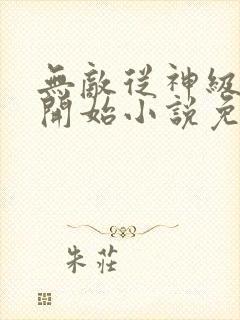 無敵從神級
開始小說免
朱莊